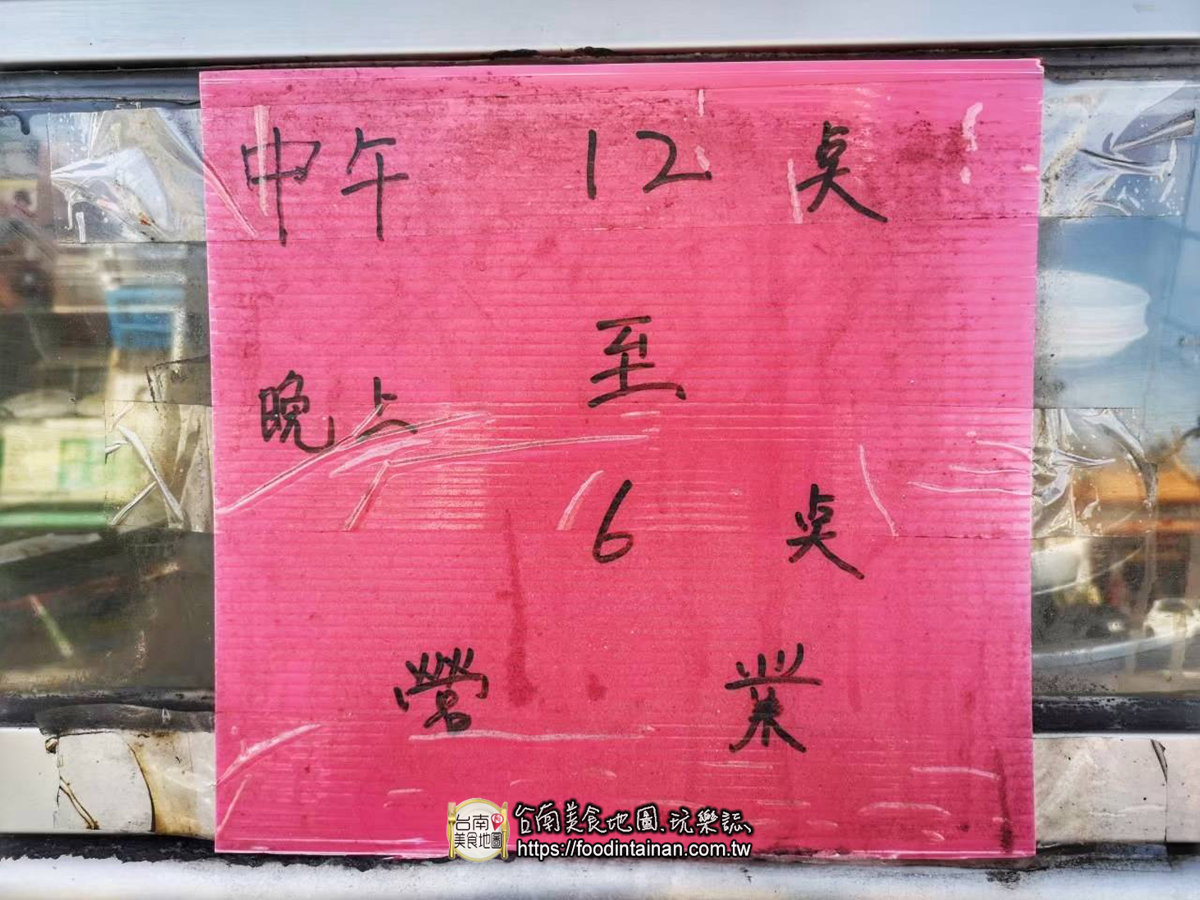 中午 12 点
至
晚上
6 点
營 業
台南
美食地圖
台南美食地圖.玩樂誌
https://foodintainan.com.tw